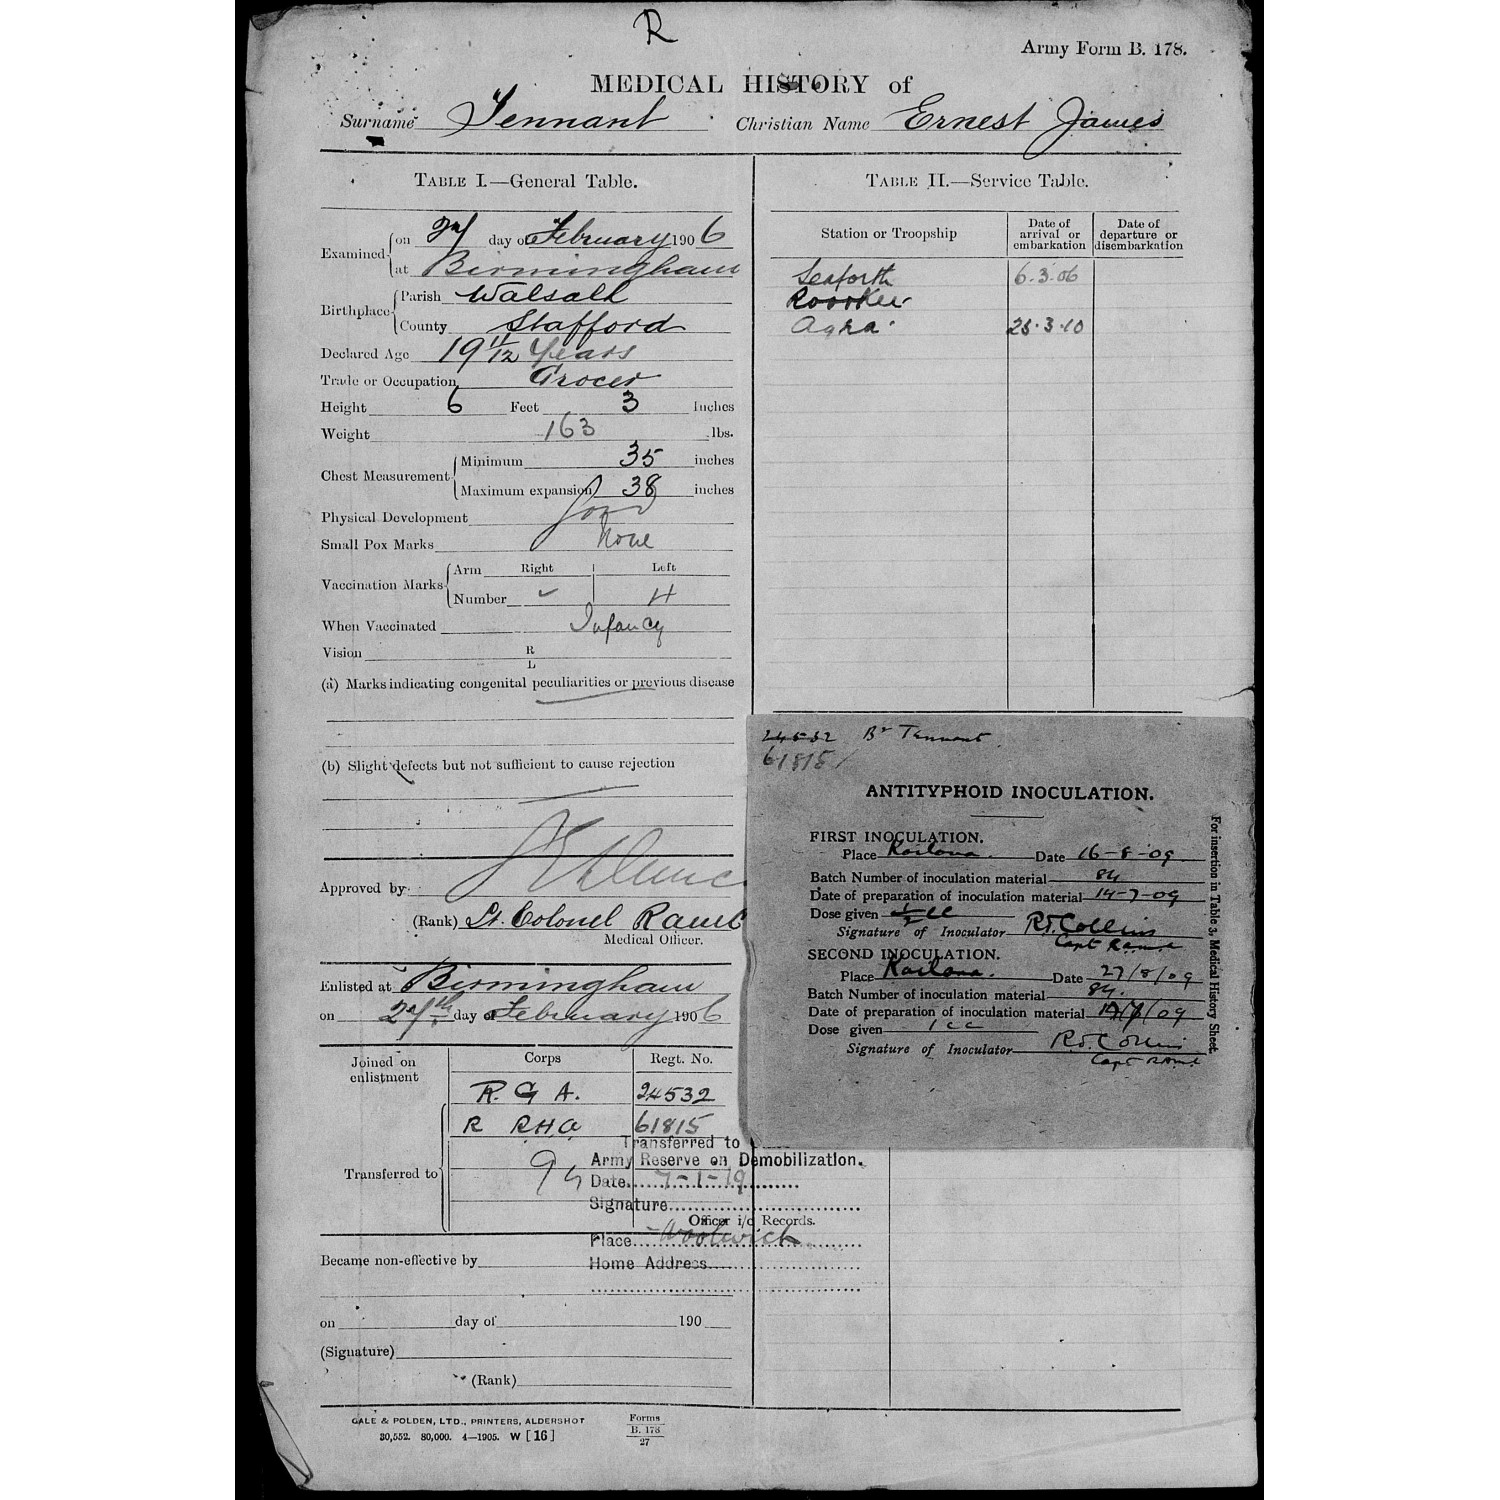 R
Army Form B. 178.
MEDICAL HISTORY of
Surname Tennant Christian Name Ernest James
TABLE I.—General Table.
Examined on 27 day of February 1906
at Birmingham
Birthplace Parish Walsall
County Stafford
Declared Age 19 11/12 Years
Trade or Occupation Grocer
Height 6 Feet 3 Inches
Weight 163 lbs.
Chest Measurement Minimum 35 inches
Maximum expansion 38 inches
Physical Development Good
Small Pox Marks None
Vaccination Marks Arm Right Left
Number 4
When Vaccinated Infancy
Vision R
L
(a) Marks indicating congenital peculiarities or previous disease
(b) Slight defects but not sufficient to cause rejection
Approved by
(Rank) Lt. Colonel RAMC
Medical Officer.
Enlisted at Birmingham
on 27th day of February 1906
Joined on enlistment Corps Regt. No.
R. G A. 24532
R RHA 61815
Transferred to
Became non-effective by
on day of 190
(Signature)
(Rank)
GALE & POLDEN, LTD., PRINTERS, ALDERSHOT
30,552. 80,000. 4—1905. W [16]
Forms
B. 178
27
TABLE II.—Service Table.
Station or Troopship Date of arrival or embarkation Date of departure or disembarkation
Seaforth 6.3.06
Roorkee
Agra 28.3.10
24532 Br Tennant
61815
ANTITYPHOID INOCULATION.
FIRST INOCULATION.
Place Kailana. Date 16-8-09
Batch Number of inoculation material 84
Date of preparation of inoculation material 14-7-09
Dose given 1/2 cc
Signature of Inoculator R.T. Collins
Capt RAMC
SECOND INOCULATION.
Place Kailana. Date 27/8/09
Batch Number of inoculation material 84.
Date of preparation of inoculation material /7/09
Dose given 1 cc
Signature of Inoculator R.T. Collins
Capt RAMC
For insertion in Table 3, Medical History Sheet.
Transferred to
Army Reserve on Demobilization.
Date 7-1-19
Signature
Officer i/c Records.
Place Woolwich
Home Address